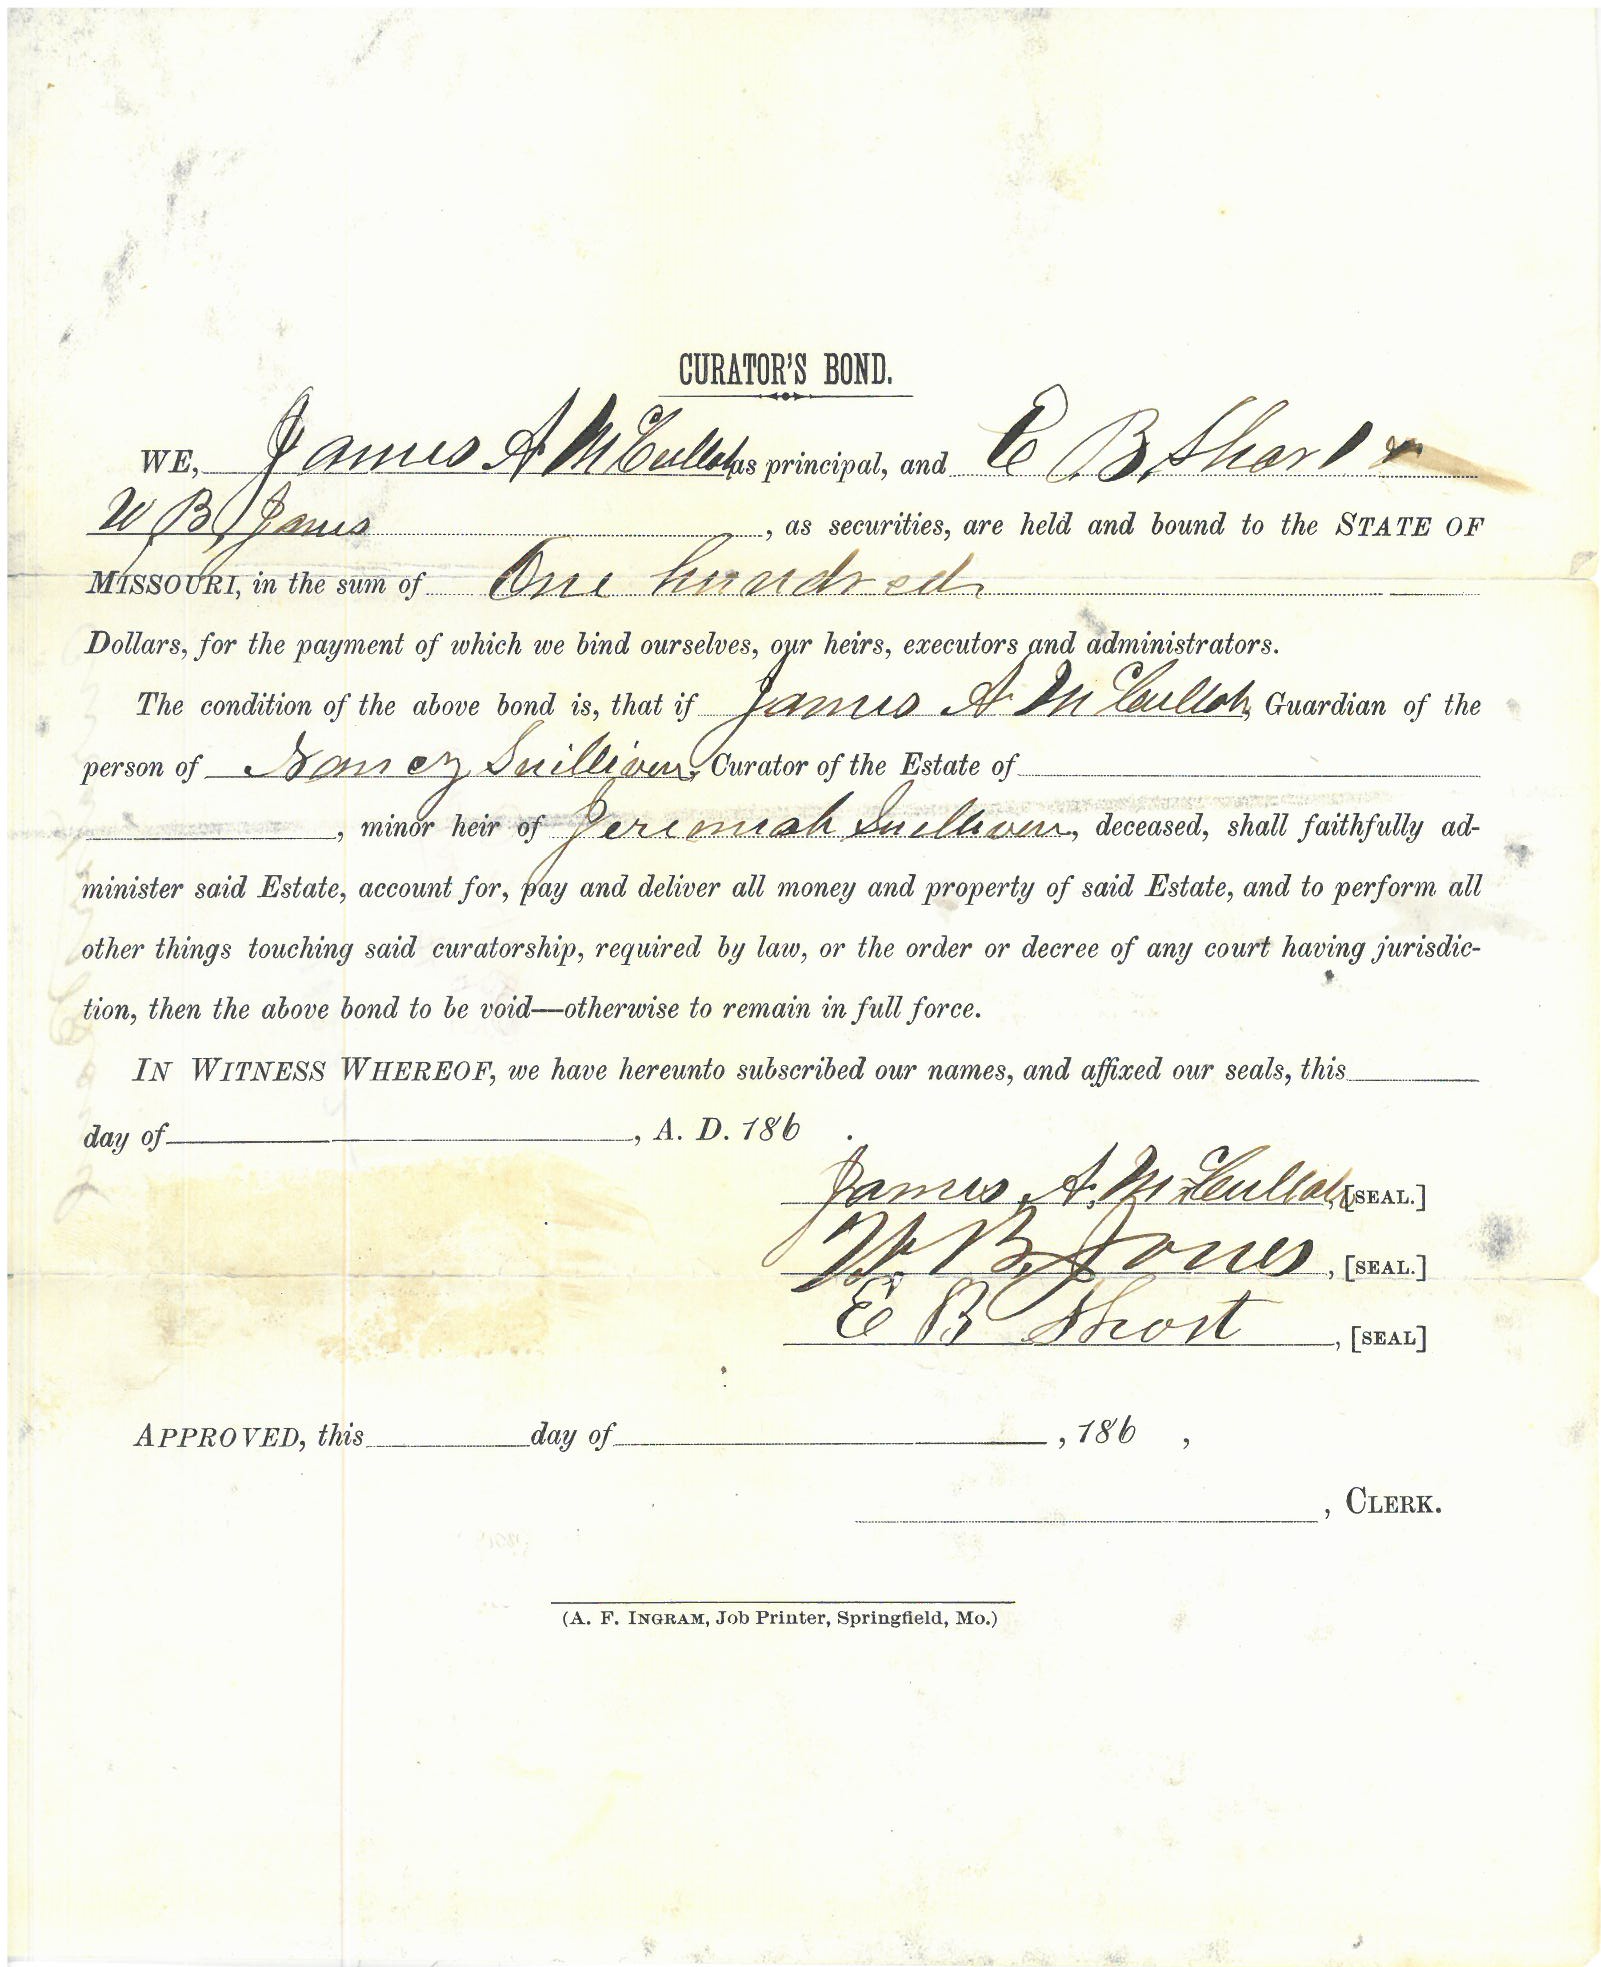 CURATOR'S BOND.
WE, James A McCulloh as principal, and E B Short &
W B Jones, as securities, are held and bound to the STATE OF
MISSOURI, in the sum of One hundred
Dollars, for the payment of which we bind ourselves, our heirs, executors and administrators.
The condition of the above bond is, that if James A McCulloh, Guardian of the
person of Nancy Sullivan, Curator of the Estate of
, minor heir of Jeremiah Sullivan, deceased, shall faithfully ad-
minister said Estate, account for, pay and deliver all money and property of said Estate, and to perform all
other things touching said curatorship, required by law, or the order or decree of any court having jurisdic-
tion, then the above bond to be void—otherwise to remain in full force.
IN WITNESS WHEREOF, we have hereunto subscribed our names, and affixed our seals, this
day of , A. D. 186 .
James A. McCulloh, [SEAL.]
W. B. Jones, [SEAL.]
E B Short, [SEAL]
APPROVED, this day of , 186 ,
, CLERK.
(A. F. INGRAM, Job Printer, Springfield, Mo.)